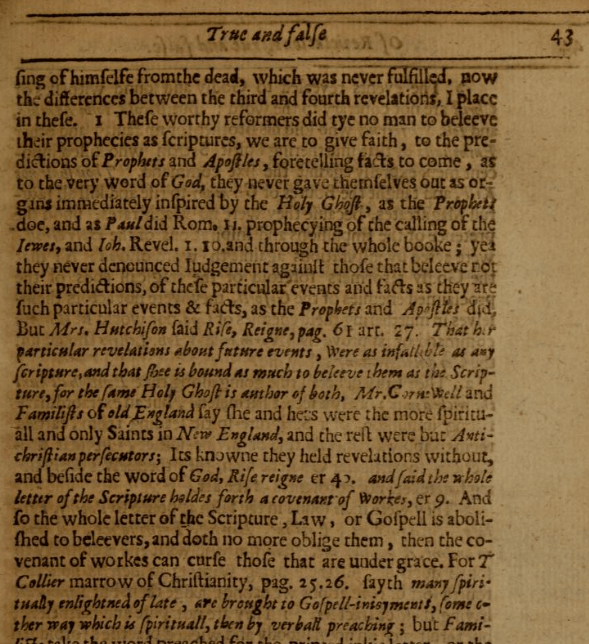 True and falſe 43
ſing of himſelfe fromthe dead, which was never fulfilled, now
the differences between the third and fourth revelations, I place
in theſe. 1 Theſe worthy reformers did tye no man to beleeve
their prophecies as ſcriptures, we are to give faith, to the pre-
dictions of Prophets and Apoſtles, foretelling facts to come, as
to the very word of God, they never gave themſelves out as or-
gans immediately inſpired by the Holy Ghoſt, as the Prophets
doe, and as Paul did Rom. 11. prophecying of the calling of the
Iewes, and Ioh. Revel. 1. 10. and through the whole booke; yet
they never denounced Iudgement againſt thoſe that beleeve not
their predictions, of theſe particular events and facts as they are
ſuch particular events & facts, as the Prophets and Apoſtles did,
But Mrs. Hutchiſon ſaid Riſe, Reigne, pag. 61 art. 27. That her
particular revelations about future events, were as infallible as any
ſcripture, and that ſhee is bound as much to beleeve them as the Scrip-
ture, for the ſame Holy Ghoſt is author of both, Mr. Cornwell and
Familiſts of old England ſay ſhe and hers were the more ſpiritu-
all and only Saints in New England, and the reſt were but Anti-
chriſtian perſecutors; Its knowne they held revelations without,
and beſide the word of God, Riſe reigne er 40. and ſaid the whole
letter of the Scripture holdes forth a covenant of Workes, er 9. And
ſo the whole letter of the Scripture, Law, or Goſpell is aboli-
ſhed to beleevers, and doth no more oblige them, then the co-
venant of workes can curſe thoſe that are under grace. For T
Collier marrow of Chriſtianity, pag. 25.26. ſayth many ſpiri-
tually enlightned of late, are brought to Goſpell-inioyments, ſome o-
ther way which is ſpirituall, then by verball preaching; but Fami-
liſts take the word preached for the